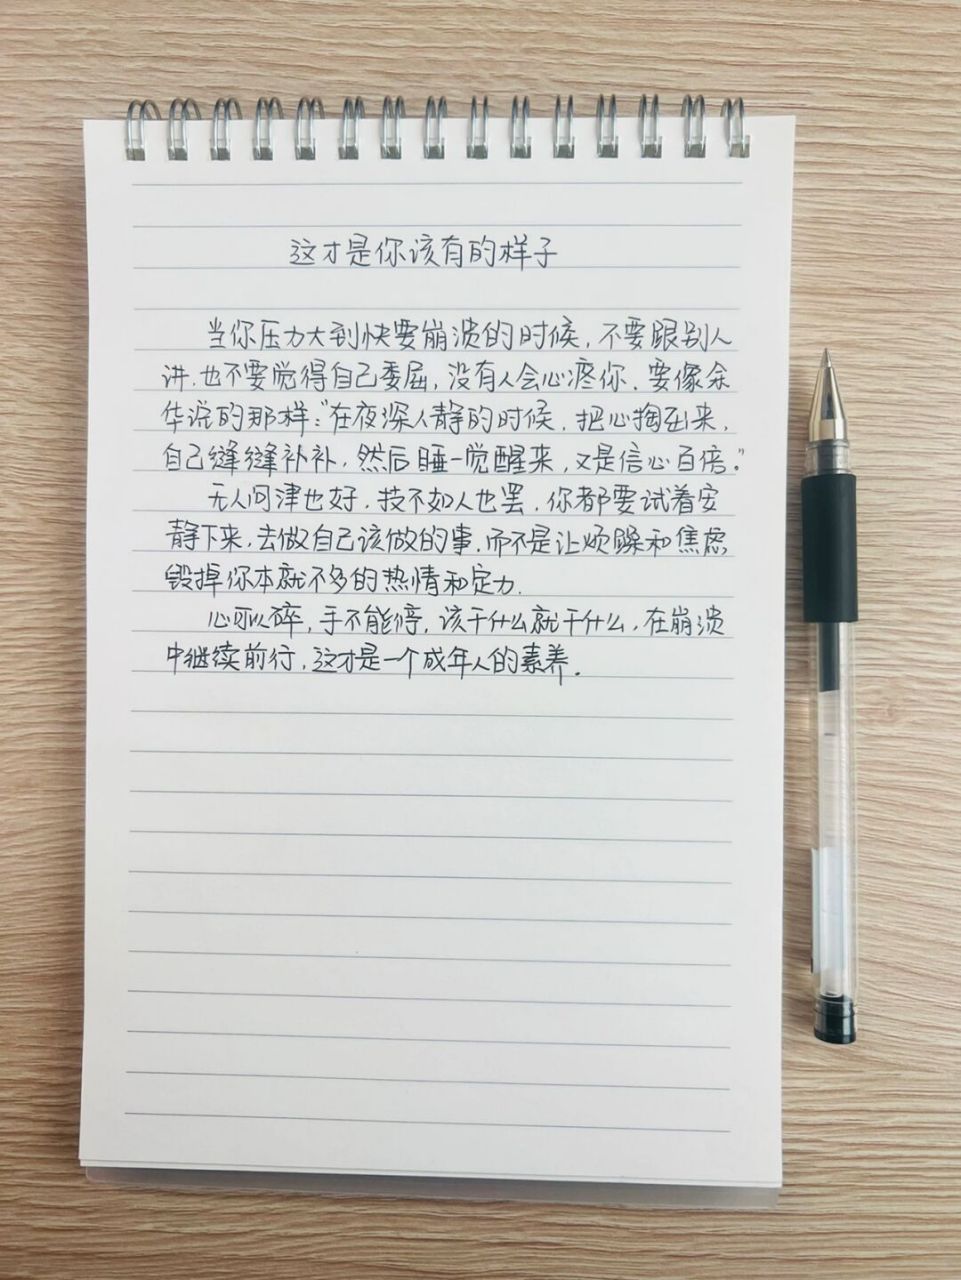 这才是你该有的样子
当你压力大到快要崩溃的时候，不要跟别人
讲，也不要觉得自己委屈，没有人会心疼你．要像余
华说的那样："在夜深人静的时候，把心掏出来，
自己缝缝补补，然后睡一觉醒来，又是信心百倍。"
无人问津也好，技不如人也罢，你都要试着安
静下来，去做自己该做的事，而不是让烦躁和焦虑
毁掉你本就不多的热情和定力．
心可以碎，手不能停，该干什么就干什么，在崩溃
中继续前行，这才是一个成年人的素养．